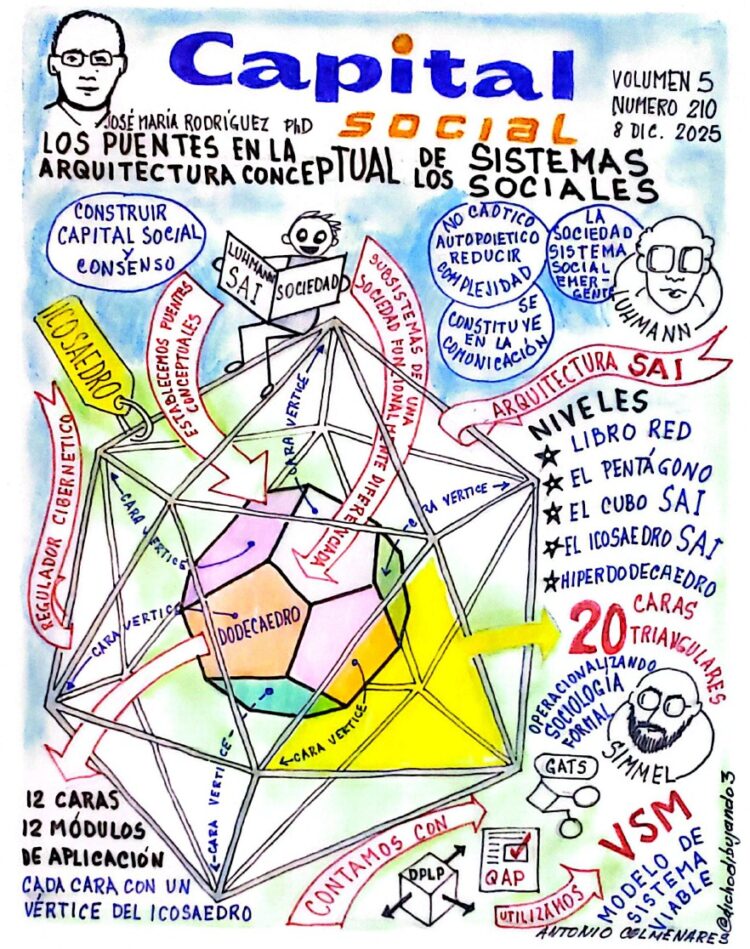 Capital
social
VOLUMEN 5
NUMERO 210
8 DIC. 2025
JOSÉ MARÍA RODRÍGUEZ PhD
LOS PUENTES EN LA
ARQUITECTURA CONCEPTUAL DE LOS SISTEMAS SOCIALES
CONSTRUIR
CAPITAL SOCIAL
Y
CONSENSO
LUHMANN
SAI
SOCIEDAD
NO CAÓTICO
AUTOPOIETICO
REDUCIR
COMPLEJIDAD
LA
SOCIEDAD
SISTEMA
SOCIAL
EMER-
GENTE
SE
CONSTITUYE
EN LA
COMUNICACIÓN
LUHMANN
ICOSAEDRO
ESTABLECEMOS PUENTES
CONCEPTUALES
SUBSISTEMAS DE UNA
SOCIEDAD FUNCIONALMENTE DIFERENCIADA
ARQUITECTURA SAI
NIVELES
LIBRO RED
EL PENTÁGONO
EL CUBO SAI
EL ICOSAEDRO SAI
HIPERDODECAEDRO
REGULADOR CIBERNETICO
CARA VERTICE
CARA VERTICE
CARA VERTICE
CARA VERTICE
CARA VERTICE
CARA VERTICE
CARA VERTICE
DODECAEDRO
20 CARAS
TRIANGULARES
OPERACIONALIZANDO
SOCIOLOGÍA
FORMAL
SIMMEL
GATS
12 CARAS
12 MÓDULOS
DE APLICACIÓN
CADA CARA CON UN
VÉRTICE DEL ICOSAEDRO
CONTAMOS CON
DPLP
QAP
UTILIZAMOS
VSM
MODELO DE
SISTEMA
VIABLE
ANTONIO COLMENARES
@dichoodibujando3